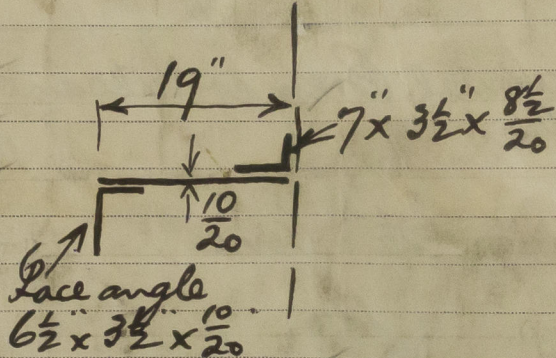 19"
7" x 3½" x 8½/20
10/20
Face angle
6½" x 3½" x 10/20